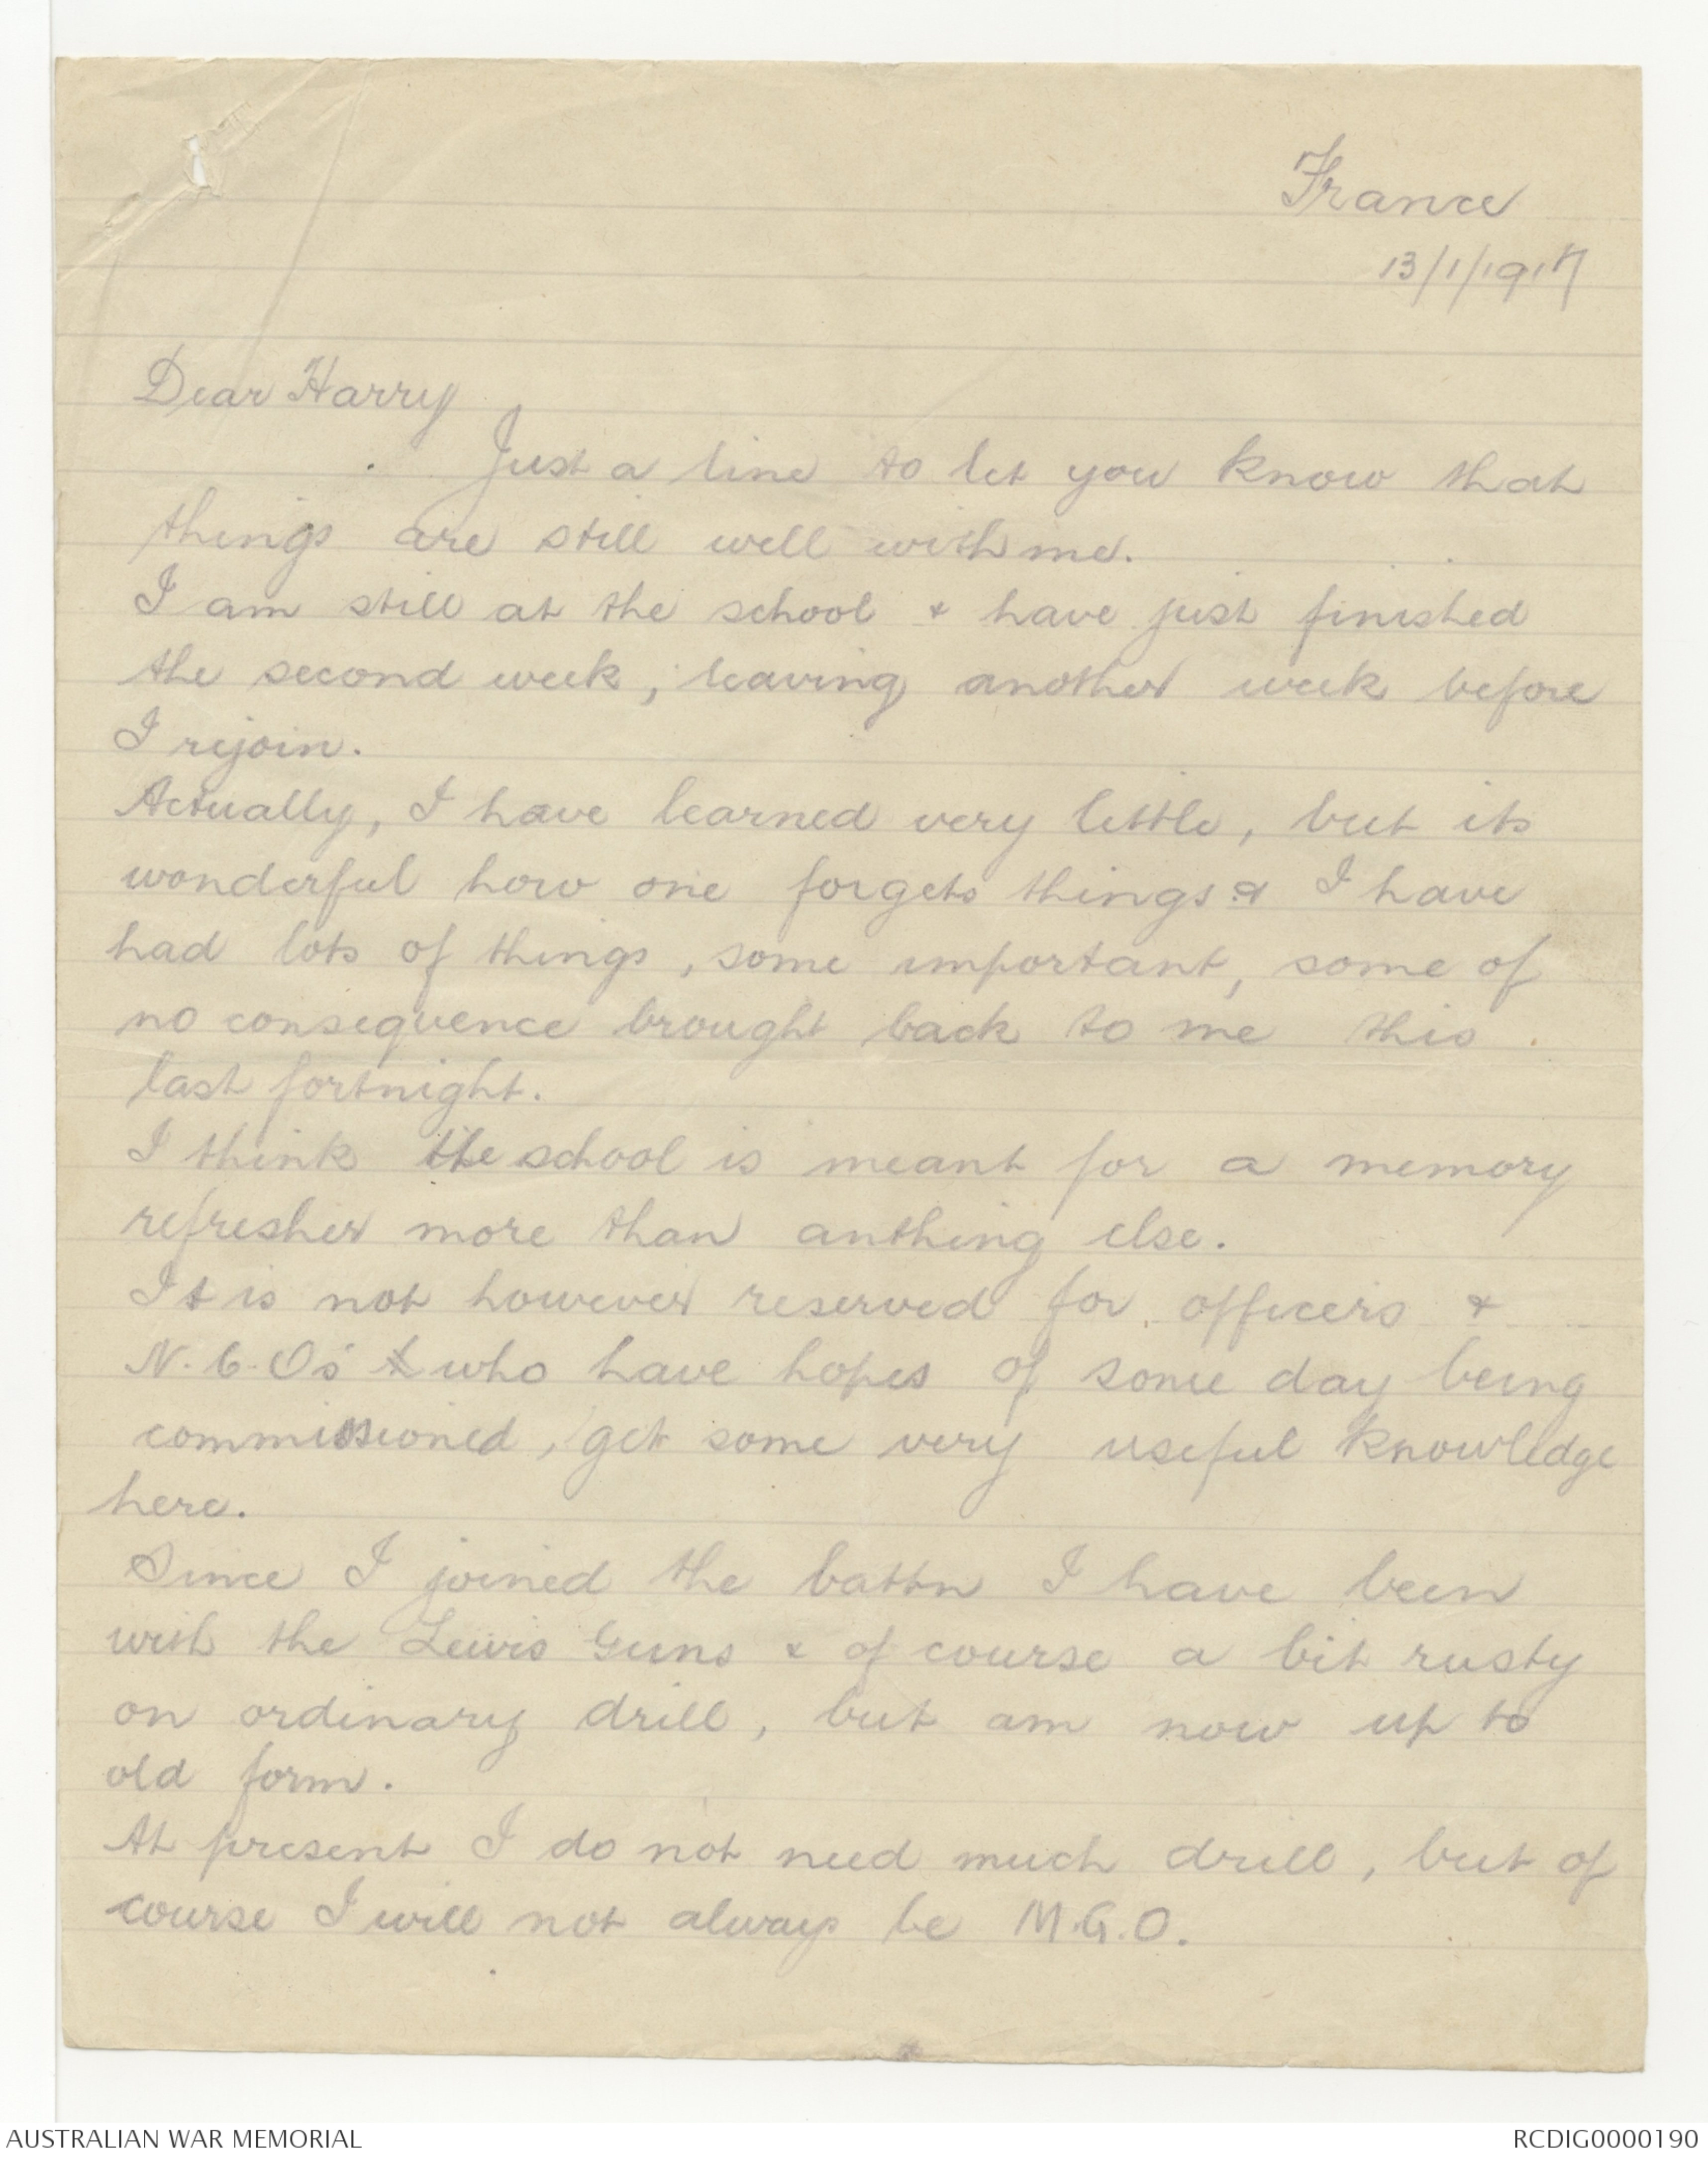 France
13/1/1917
Dear Harry
Just a line to let you know that
things are still well with me.
I am still at the school & have just finished
the second week, leaving another week before
I rejoin.
Actually, I have learned very little, but its
wonderful how one forgets things & I have
had lots of things, some important, some of
no consequence brought back to me this
last fortnight.
I think the school is meant for a memory
refresher more than anthing else.
It is not however reserved for officers &
N.C.Os who have hopes of some day being
commissioned, get some very useful knowledge
here.
Since I joined the battn I have been
with the Lewis Guns & of course a bit rusty
on ordinary drill, but am now up to
old form.
At present I do not need much drill, but of
course I will not always be M.G.O.
AUSTRALIAN WAR MEMORIAL
RCDIG0000190